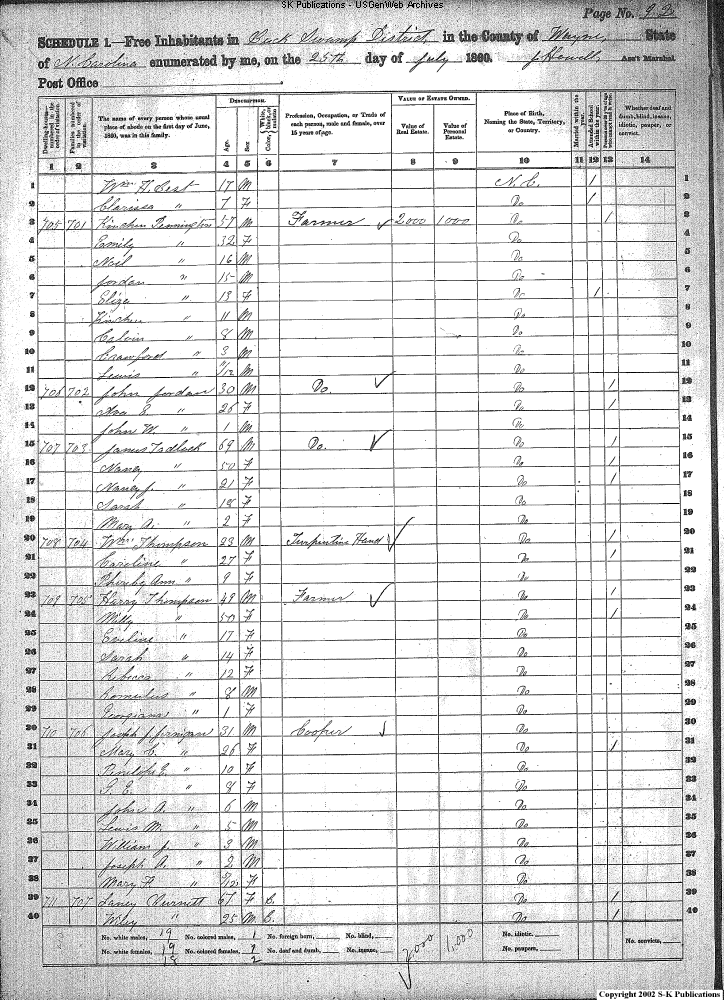 SK Publications - USGenWeb Archives
Page No. 92
SCHEDULE 1.—Free Inhabitants in Buck Swamp District in the County of Wayne, State
of N Carolina enumerated by me, on the 25th day of July 1860. J Howell Ass't Marshal
Post Office
Dwelling-houses numbered in the order of visitation.
Families numbered in the order of visitation.
The name of every person whose usual place of abode on the first day of June, 1860, was in this family.
DESCRIPTION.
Age.
Sex
Color, White, black, or mulatto
Profession, Occupation, or Trade of each person, male and female, over 15 years of age.
VALUE OF ESTATE OWNED.
Value of Real Estate.
Value of Personal Estate.
Place of Birth, Naming the State, Territory, or Country.
Married within the year.
Attended School within the year.
Whether deaf and dumb, blind, insane, idiotic, pauper, or convict.
1 2 3 4 5 6 7 8 9 10 11 12 13 14
1 Wm H. Best 17 M N.C. / 1
2 Clarissa " 7 F Do / 2
3 705 701 Kinchen Pennington 57 M Farmer 2000 1000 Do / 3
4 Emily " 32 F Do 4
5 " 16 M Do 5
6 Jordan " 15 M Do 6
7 Eliza " 13 F Do / 7
8 Kinchen " 11 M Do 8
9 Calvin " 8 M Do 9
10 Crawford " 3 M Do 10
11 Lewis " /12 M Do 11
12 706 702 John Jordan 30 M Do Do / 12
13 E. " 26 F Do / 13
14 John W. " 1 M Do 14
15 707 703 James Tadlock 69 M Do. Do / 15
16 Nancy " 50 F Do / 16
17 Nancy J. " 21 F Do / 17
18 Sarah " 18 F Do 18
19 Mary A. " 2 F Do 19
20 708 704 Wm Thompson 23 M Turpentine Hand Do / 20
21 Caroline " 27 F Do / 21
22 Ann " 9 F Do 22
23 709 705 Harry Thompson 49 M Farmer Do / 23
24 Milly " 50 F Do / 24
25 Eveline " 17 F Do 25
26 Sarah " 14 F Do 26
27 Rebecca " 12 F Do 27
28 Romulus " 8 M Do 28
29 Georgiana " 1 F Do 29
30 710 706 Joseph J. Jernigan 31 M Cooper Do 30
31 Mary C. " 26 F Do / 31
32 Penelope E. " 10 F Do 32
33 E. " 8 F Do 33
34 John A. " 6 M Do 34
35 Lewis M. " 5 M Do 35
36 William J. " 3 M Do 36
37 Joseph A. " 2 M Do 37
38 Mary F. " /12 F Do 38
39 711 707 Laney Burnett 67 F B. Do / 39
40 Wiley " 25 M B. Do / 40
No. white males, 19 No. colored males, 1 No. foreign born, No. blind, 2000 1,000 No. idiotic, No. convicts,
No. white females, 19 No. colored females, 1 No. deaf and dumb, No. insane, No. paupers,
2
Copyright 2002 S-K Publications